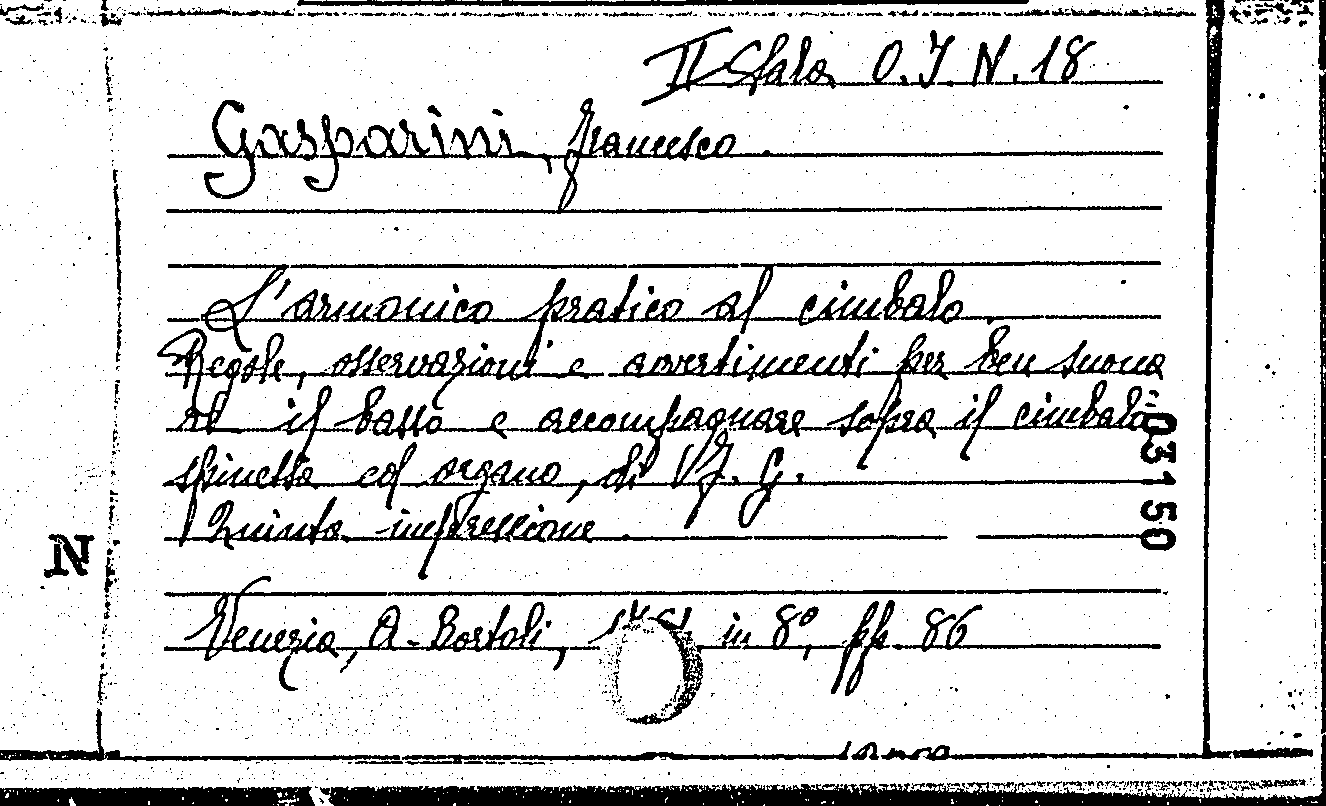 II Sala O.I.N.18
Gasparini, Francesco.
L'armonico pratico al cimbalo.
Regole, osservazioni e avvertimenti per ben suona
re il basso e accompagnare sopra il cimbalo
spinetta ed organo, di F. G.
Quinta impressione.
031150
N
Venezia, A. Bortoli, in 8°, pp. 86